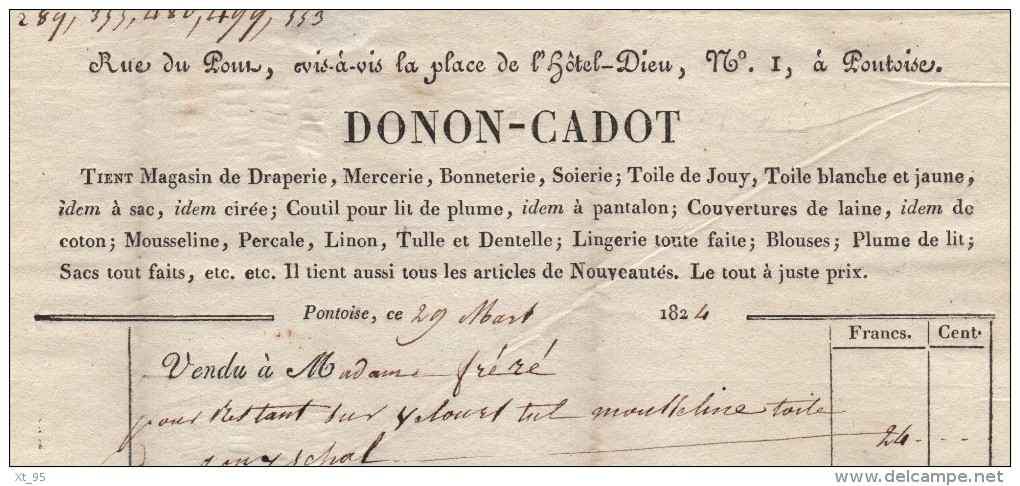 289, 355, 480, 499, 553
Rue du Pont, vis-à-vis la place de l'Hôtel-Dieu, N°. 1, à Pontoise.
DONON-CADOT
TIENT Magasin de Draperie, Mercerie, Bonneterie, Soierie; Toile de Jouy, Toile blanche et jaune,
idem à sac, idem cirée; Coutil pour lit de plume, idem à pantalon; Couvertures de laine, idem de
coton; Mousseline, Percale, Linon, Tulle et Dentelle; Lingerie toute faite; Blouses; Plume de lit;
Sacs tout faits, etc. etc. Il tient aussi tous les articles de Nouveautés. Le tout à juste prix.
Pontoise, ce 29 Mars 1824
Francs. Cent.
Vendu à Madame fréré
pour Restant sur velours tul mousseline toile
schal 24
Xt_95
delcampe.net